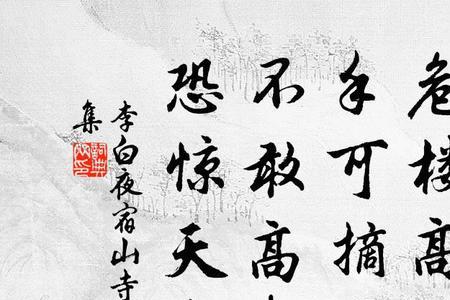 危楼高
手可摘
不敢高
恐惊天
李白夜宿山寺
集